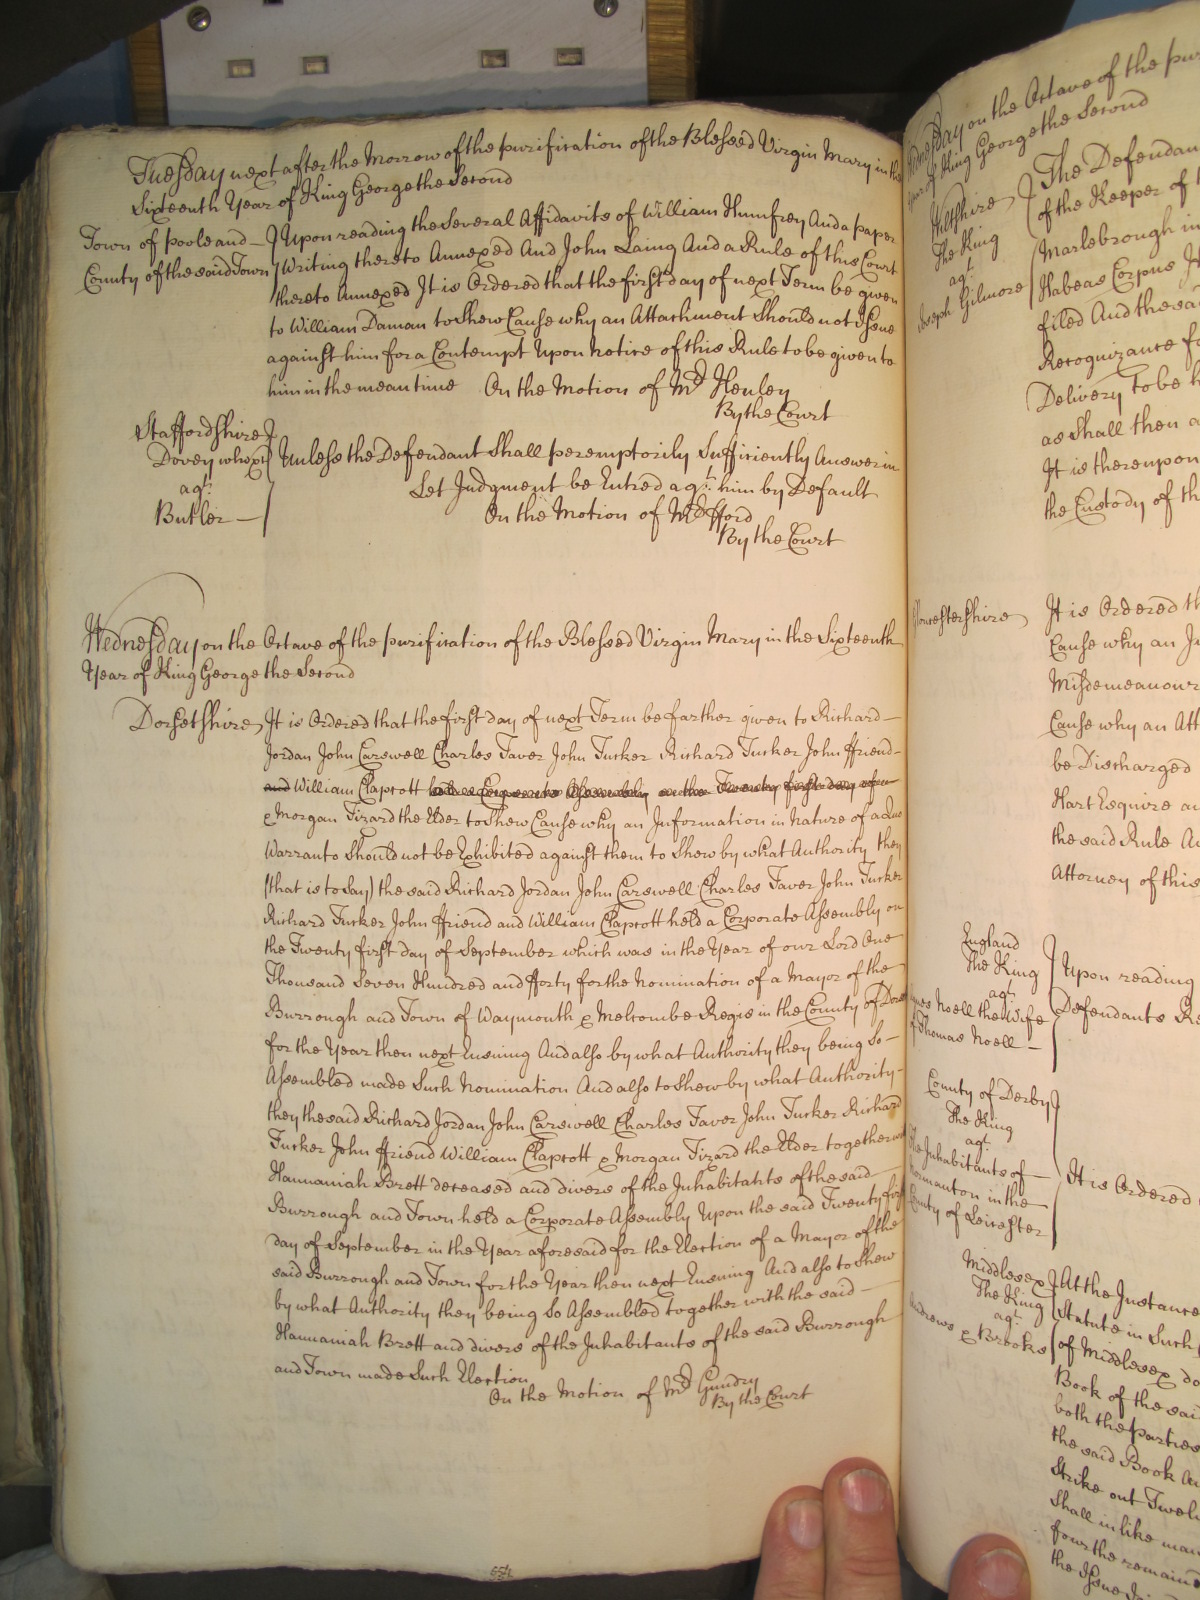 Tuesday next after the Morrow of the purification of the Blessed Virgin Mary in the
Sixteenth Year of King George the Second
Town of poole and
County of the said Town
Upon reading the Several Affidavits of William Humfrey And a paper
Writing thereto Annexed And John Laing And a Rule of this Court
thereto Annexed It is Ordered that the first day of next Term be given
to William Daman to Shew Cause why an Attachment Should not Issue
against him for a Contempt Upon notice of this Rule to be given to
him in the meantime On the Motion of Mr Henley
By the Court
Staffordshire
Dovey
agt.
Butler
Unless the Defendant Shall peremptorily Sufficiently Answer in
Let Judgment be Entred agt. him by Default
On the Motion of Mr fford
By the Court
Wednesday on the Octave of the purification of the Blessed Virgin Mary in the Sixteenth
Year of King George the Second
Dorsetshire
It is Ordered that the first day of next Term be farther given to Richard
Jordan John Carswell Charles Taver John Tucker Richard Tucker John ffriend
and William Claprott
& Morgan Tizard the Elder to Shew Cause why an Information in Nature of a Quo
Warranto Should not be Exhibited against them to Shew by what Authority they
(that is to Say) the said Richard Jordan John Carswell Charles Taver John Tucker
Richard Tucker John ffriend and William Claprott held a Corporate Assembly on
the Twenty first day of September which was in the Year of our Lord One
Thousand Seven Hundred and fforty for the Nomination of a Mayor of the
Burrough and Town of Waymouth & Melcombe Regis in the County of Dorset
for the Year then next Ensuing And also by what Authority they being So
Assembled made Such Nomination And also to Shew by what Authority
they the said Richard Jordan John Carswell Charles Taver John Tucker Richard
Tucker John ffriend William Claprott & Morgan Tizard the Elder together with
Hannaniah Brett deceased and divers of the Inhabitants of the said
Burrough and Town held a Corporate Assembly Upon the said Twenty first
day of September in the Year aforesaid for the Election of a Mayor of the
said Burrough and Town for the Year then next Ensuing And also to Shew
by what Authority they being So Assembled together with the said
Hannaniah Brett and divers of the Inhabitants of the said Burrough
and Town made Such Election
On the Motion of Mr Gundry
By the Court
on the Octave of the
Year of King George the Second
Wiltshire
The King
agt.
Joseph Gilmore
The Defendan
of the Keeper of
Marlebrough in
Habeas Corpus
filed And the sa
Recognizance fo
Delivery to be
as Shall then a
It is thereupon
the Custody of th
Gloucestershire
It is Ordered th
Cause why an
Misdemeanours
Cause why an Att
be Discharged
Hart Esquire an
the said Rule
Attorney of this
England
The King
agt.
Noell the Wife
of Thomas Noell
Upon reading
Defendants Re
County of Derby
The King
agt.
The Inhabitants of
Normanton in the
County of Leicester
It is Ordered
Middlesex
The King
agt.
Andrews & Brooks
At the Instance
Statute in Such
of Middlesex do
Book of the said
both the parties
the said Book
Strike out Twelv
Shall in like man
four the remain
the Issue